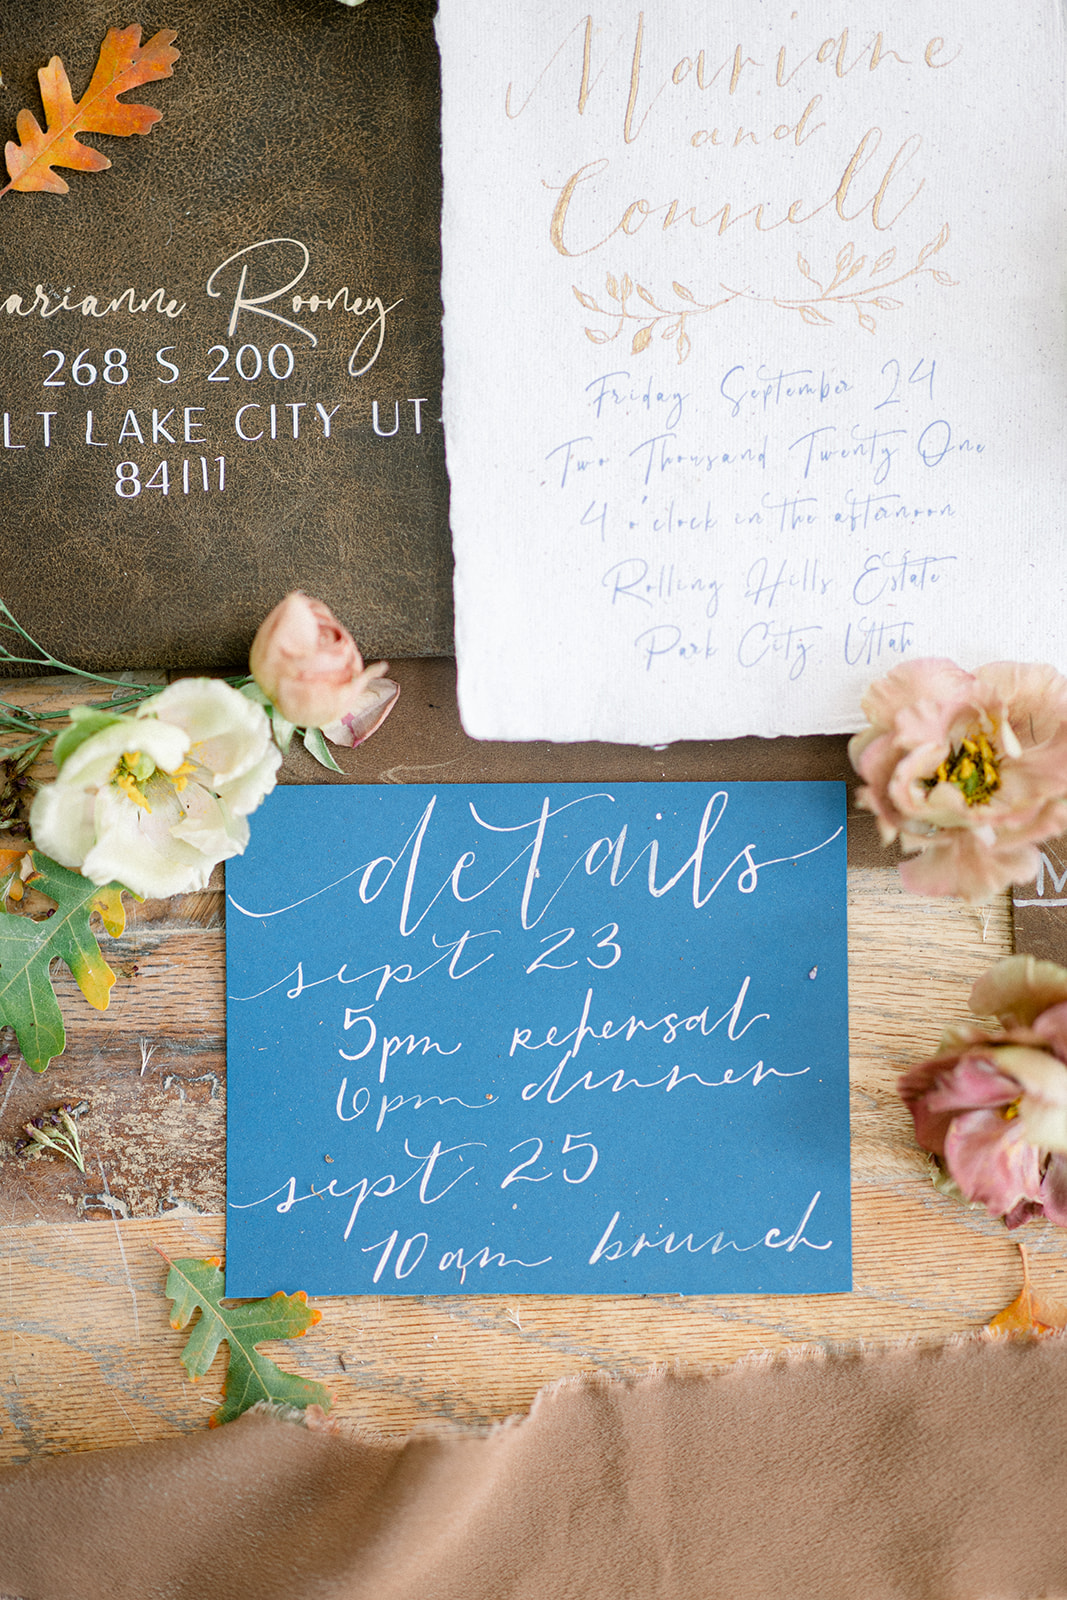 arianne Rooney
268 S 200
LT LAKE CITY UT
84111
Mariane
and
Connell
Friday September 24
Two Thousand Twenty One
4 o'clock in the afternoon
Rolling Hills Estate
Park City Utah
details
sept 23
5pm rehersal
6pm dinner
sept 25
10am brunch
M